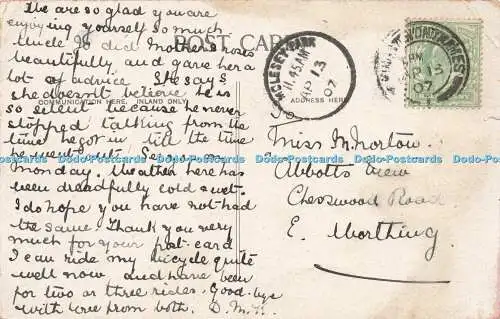 We are so glad you are
enjoying yourself so much
Uncle did Mother's roses
beautifully and gave her a
lot of advice. She says
she doesn't believe he is
so silent because he never
stopped talking from the
time he got in till the time
he went out. Sensay on
Monday. Weather here has
been dreadfully cold & wet.
I do hope you have not had
the same. Thank you very
much for your post-card
I can ride my bicycle quite
well now and have been
for two or three rides. Good-bye
with love from both. D.M.
POST CARD
COMMUNICATION HERE, INLAND ONLY.
ADDRESS HERE
To
Miss M. Morton
Abbotts View
Chesswood Road
E. Worthing
11.45 AM
AP 13
07
AP 13
07
Dodo-Postcards Dodo-Postcards Dodo-Postcards Dodo-Postcards Dodo-Postcards